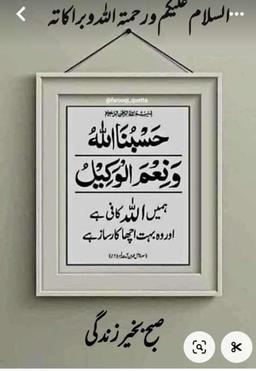 السلام علیکم ورحمتہ اللہ وبراکاتہ
@farooqi_quetta
بسم اللہ الرحمن الرحیم
حَسْبُنَا اللّٰهُ
وَنِعْمَ الْوَكِيْلُ
ہمیں اللہ کافی ہے
اور وہ بہت اچھا کارساز ہے
صبح بخیر زندگی